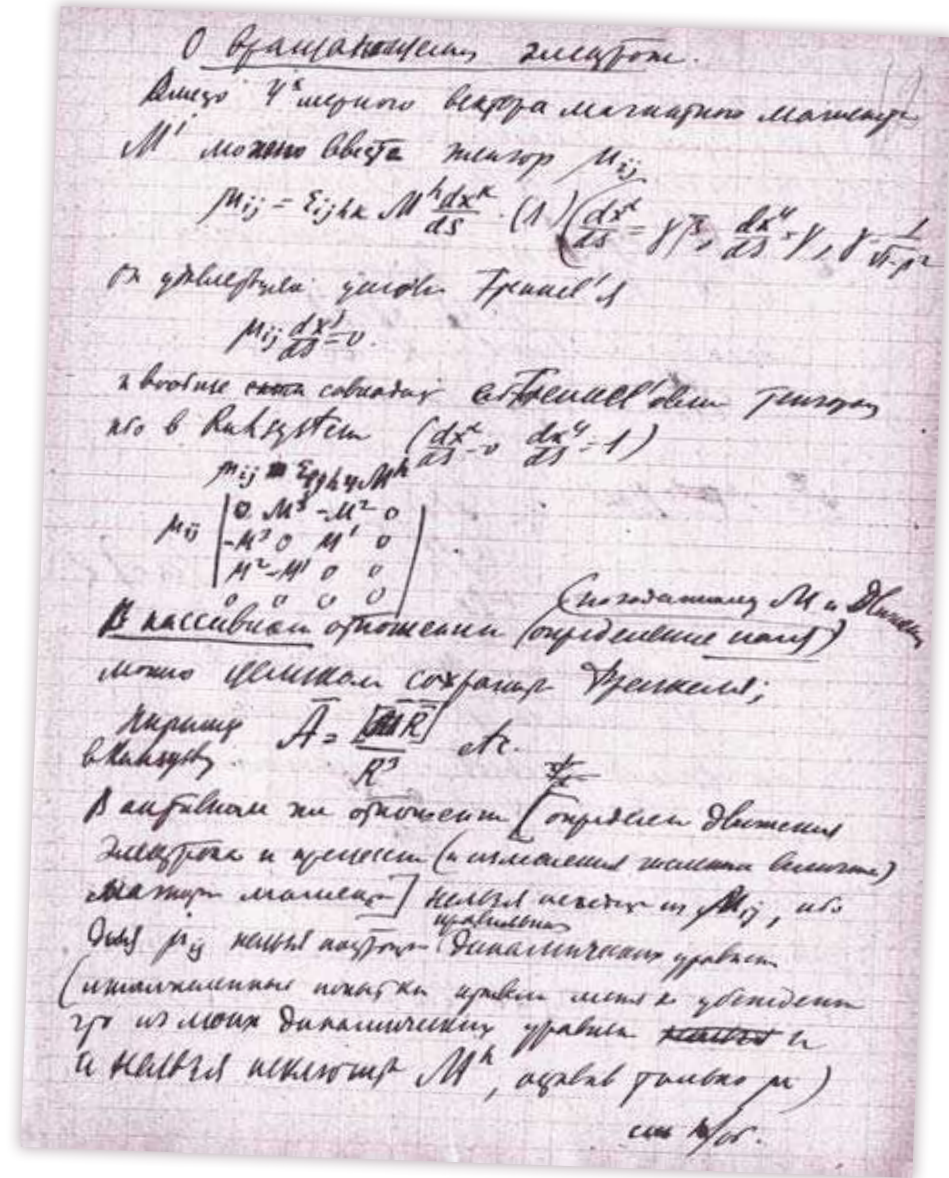 О вращающемся электроне.
Вместо 4х мерного вектора магнитного момента
M^i можно ввести тензор μ_ij
μ_ij = ε_ijhk M^h dx^k/ds · (1) (dx^α/ds = γβ, dx^4/ds = γ, γ = 1/√1-β²
он удовлетворяет условию Frenkel'я
μ_ij dx^j/ds = 0.
и вообще совпадает с Frenkel'евым тензором
ибо в Ruhsystem (dx^α/ds = 0 dx^4/ds = 1)
μ_ij = ε_ijh4 M^h
μ_ij | 0 M³ -M² 0 |
-M³ 0 M¹ 0
M² -M¹ 0 0
0 0 0 0
(по заданному M и движению
В пассивном отношении (определение поля)
можно целиком сохранить Френкеля;
Например A = [MR]/R³ etc.
в Ruhsyst.
В активном же отношении [определении движения
электрона и прецессии (и изменения величины)
магнитн момента] нельзя исходить из μ_ij, ибо
правильных
для μ_ij нельзя получить динамических уравнений
попытки привели меня к убеждению
что из моих динамических уравнений нельзя и
и нельзя исключить M^h, оставив только μ)
см н/об.